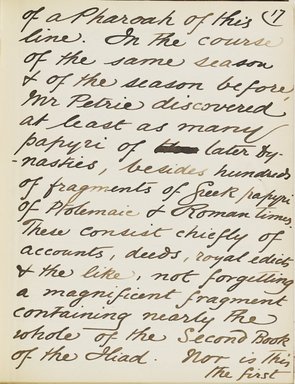 of a Pharoah of this 17
line. In the course
of the same season
& of the season before,
Mr Petrie discovered
at least as many
papyri of later Dy-
-nasties, besides hundreds
of fragments of Greek papyri
of Ptolemaic & Roman times.
These consist chiefly of
accounts, deeds, royal edicts
& the like, not forgetting
a magnificent fragment
containing nearly the
whole of the Second Book
of the Iliad. Nor is this
the first